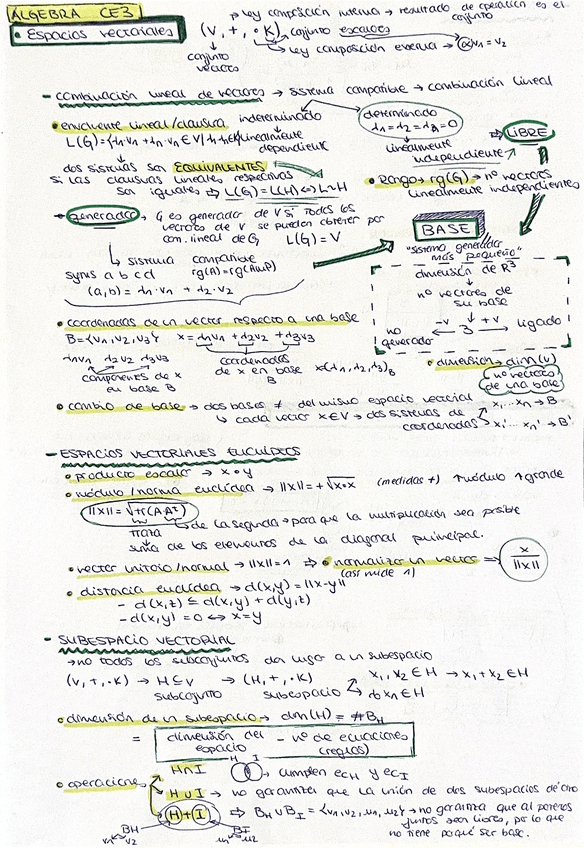 ÁLGEBRA CE3
• Espacios vectoriales
(V, +, ·K)
↗ ley composición interna → resultado de operación es el conjunto
conjunto escalares
ley composición externa → αv1 = v2
conjunto vectores
- combinación lineal de vectores → sistema compatible → combinación lineal
indeterminado
linealmente dependiente
determinado
λ1 = λ2 = λ3 = 0
linealmente independiente
⇒ LIBRE
• envolvente lineal/clausura
dos sistemas son EQUIVALENTES
si las clausuras lineales respectivas
son iguales ⇒ L(G) = L(H) ⇔ G ~ H
• Rango → rg(G) → nº vectores
linealmente independientes
• generador → G es generador de V si todos los
vectores de V se pueden obtener por
com. lineal de G, L(G) = V
↳ sistema compatible
(a,b) = λ1·v1 + λ2·v2
BASE
"sistema generador
más pequeño"
dimensión de R³
↓
nº vectores de
su base
↓
no generador ←-v 3 +v→ ligado
• coordenadas de un vector respecto a una base
B = {v1, v2, v3} x = λ1v1 + λ2v2 + λ3v3
λ1v1 λ2v2 λ3v3
componentes de x
en base B
coordenadas
de x en base
B
• dimensión → dim(V)
(nº vectores
de una base)
• cambio de base → dos bases ≠ del mismo espacio vectorial
↳ cada vector x∈V → dos sistemas de
coordenadas
x1...xn → B
x1'...xn' → B'
- ESPACIOS VECTORIALES EUCLÍDEOS
• producto escalar → x • y
• módulo/norma euclídea → ||x|| = +√x•x (medidas +) ↑módulo ↑grande
||x|| = √tr(A·Aᵗ)
↳ de la segunda → para que la multiplicación sea posible
traza
↓
suma de los elementos de la diagonal principal.
• vector unitario/normal → ||x|| = 1 ⇒ • normalizar un vector ⇒ x/||x||
(así mide 1)
• distancia euclídea → d(x,y) = ||x-y||
- d(x,z) ≤ d(x,y) + d(y,z)
- d(x,y) = 0 ⇔ x = y
- SUBESPACIO VECTORIAL
→ no todos los subconjuntos dan lugar a un subespacio
(V, +, ·K) → H ⊆ V → (H, +, ·K)
subconjunto subespacio
x1, x2 ∈ H → x1 + x2 ∈ H
αx1 ∈ H
• dimensión de un subespacio → dim(H) = #BH
= dimensión del espacio - nº de ecuaciones (reglas)
• operaciones
H∩I
H I
→ cumplen ecH y ecI
H∪I → no garantiza que la unión de dos subespacios dé otro
H+I ⇒ BH ∪ BI = {v1, v2, u1, u2} → no garantiza que al ponerlos
juntos sean libres, por lo que
no tiene por qué ser base.
BH
v1 v2
BI
u1 u2